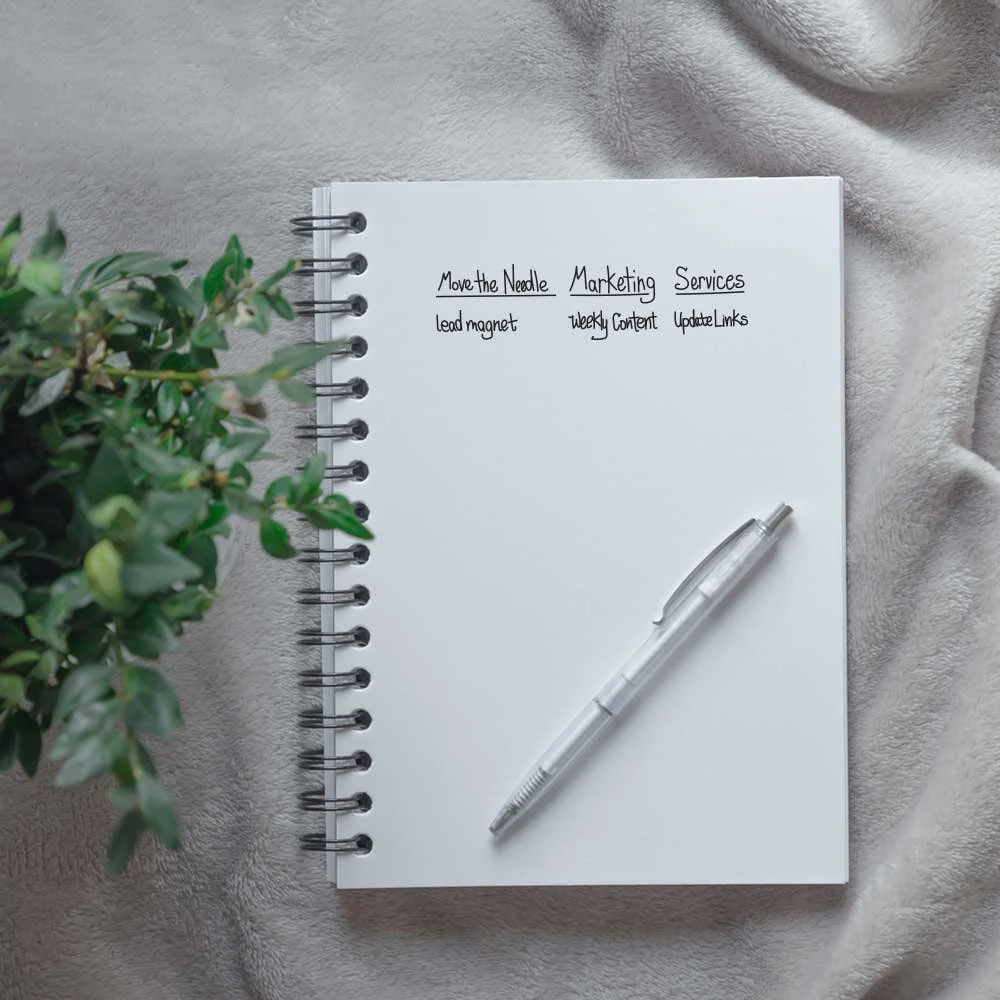 Move the Needle Marketing Services
lead magnet Weekly Content Update Links